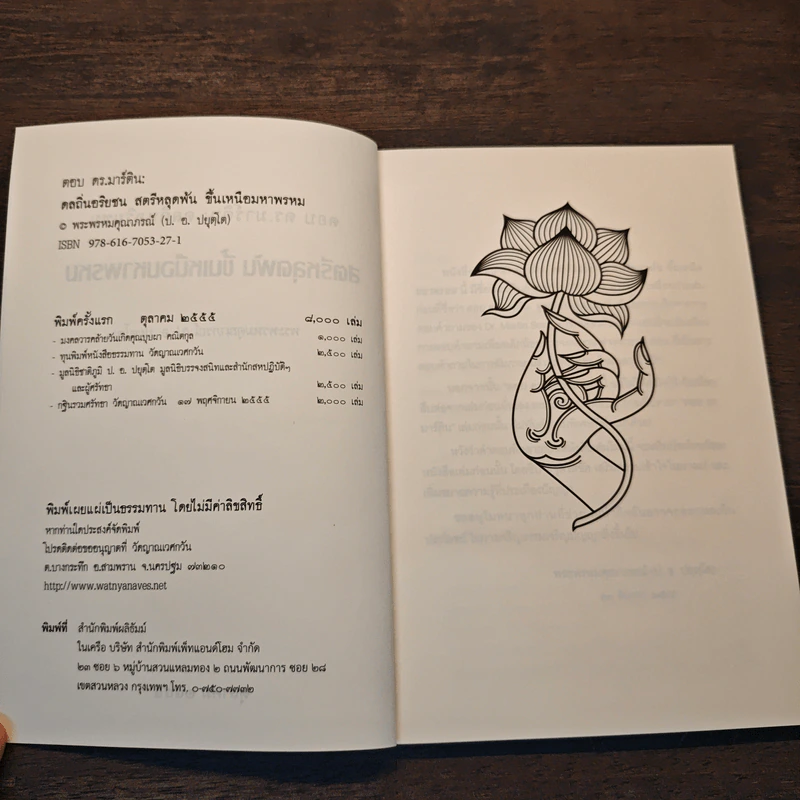 ตอบ ดร.มาร์ติน:
ดลถิ่นอริยชน สตรีหลุดพ้น ขึ้นเหนือมหาพรหม
© พระพรหมคุณาภรณ์ (ป. อ. ปยุตฺโต)
ISBN 978-616-7053-27-1
พิมพ์ครั้งแรก ตุลาคม ๒๕๕๕ ๘,๐๐๐ เล่ม
- มงคลวารคล้ายวันเกิดคุณบุบผา คณิตกุล ๑,๐๐๐ เล่ม
- ทุนพิมพ์หนังสือธรรมทาน วัดญาณเวศกวัน ๒,๕๐๐ เล่ม
- มูลนิธิชาติภูมิ ป. อ. ปยุตฺโต มูลนิธิบรรจงสนิทและสำนักสหปฏิบัติฯ
และผู้ศรัทธา ๒,๕๐๐ เล่ม
- กฐินรวมศรัทธา วัดญาณเวศกวัน ๑๗ พฤศจิกายน ๒๕๕๕ ๒,๐๐๐ เล่ม
พิมพ์เผยแผ่เป็นธรรมทาน โดยไม่มีค่าลิขสิทธิ์
หากท่านใดประสงค์จัดพิมพ์
โปรดติดต่อขออนุญาตที่ วัดญาณเวศกวัน
ต.บางกระทึก อ.สามพราน จ.นครปฐม ๗๓๒๑๐
http://www.watnyanaves.net
พิมพ์ที่ สำนักพิมพ์ผลิธัมม์
ในเครือ บริษัท สำนักพิมพ์เพ็ทแอนด์โฮม จำกัด
๒๓ ซอย ๖ หมู่บ้านสวนแหลมทอง ๒ ถนนพัฒนาการ ซอย ๒๘
เขตสวนหลวง กรุงเทพฯ โทร. ๐-๗๕๐-๗๗๓๒